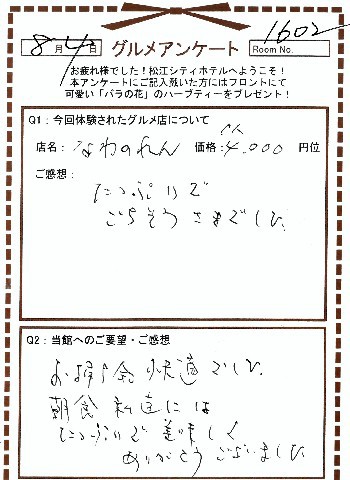 8月4日 グルメアンケート Room No. 1602
お疲れ様でした!松江シティホテルへようこそ!
本アンケートにご記入戴いた方にはフロントにて
可愛い「バラの花」のハーブティーをプレゼント!
Q1:今回体験されたグルメ店について
店名: なわのれん 価格: 4,000 円位
ご感想:
たっぷりで
ごちそうさまでした
Q2:当館へのご要望・ご感想
お風呂 快適でした
朝食 には
たっぷりで美味しく
ありがとうございました